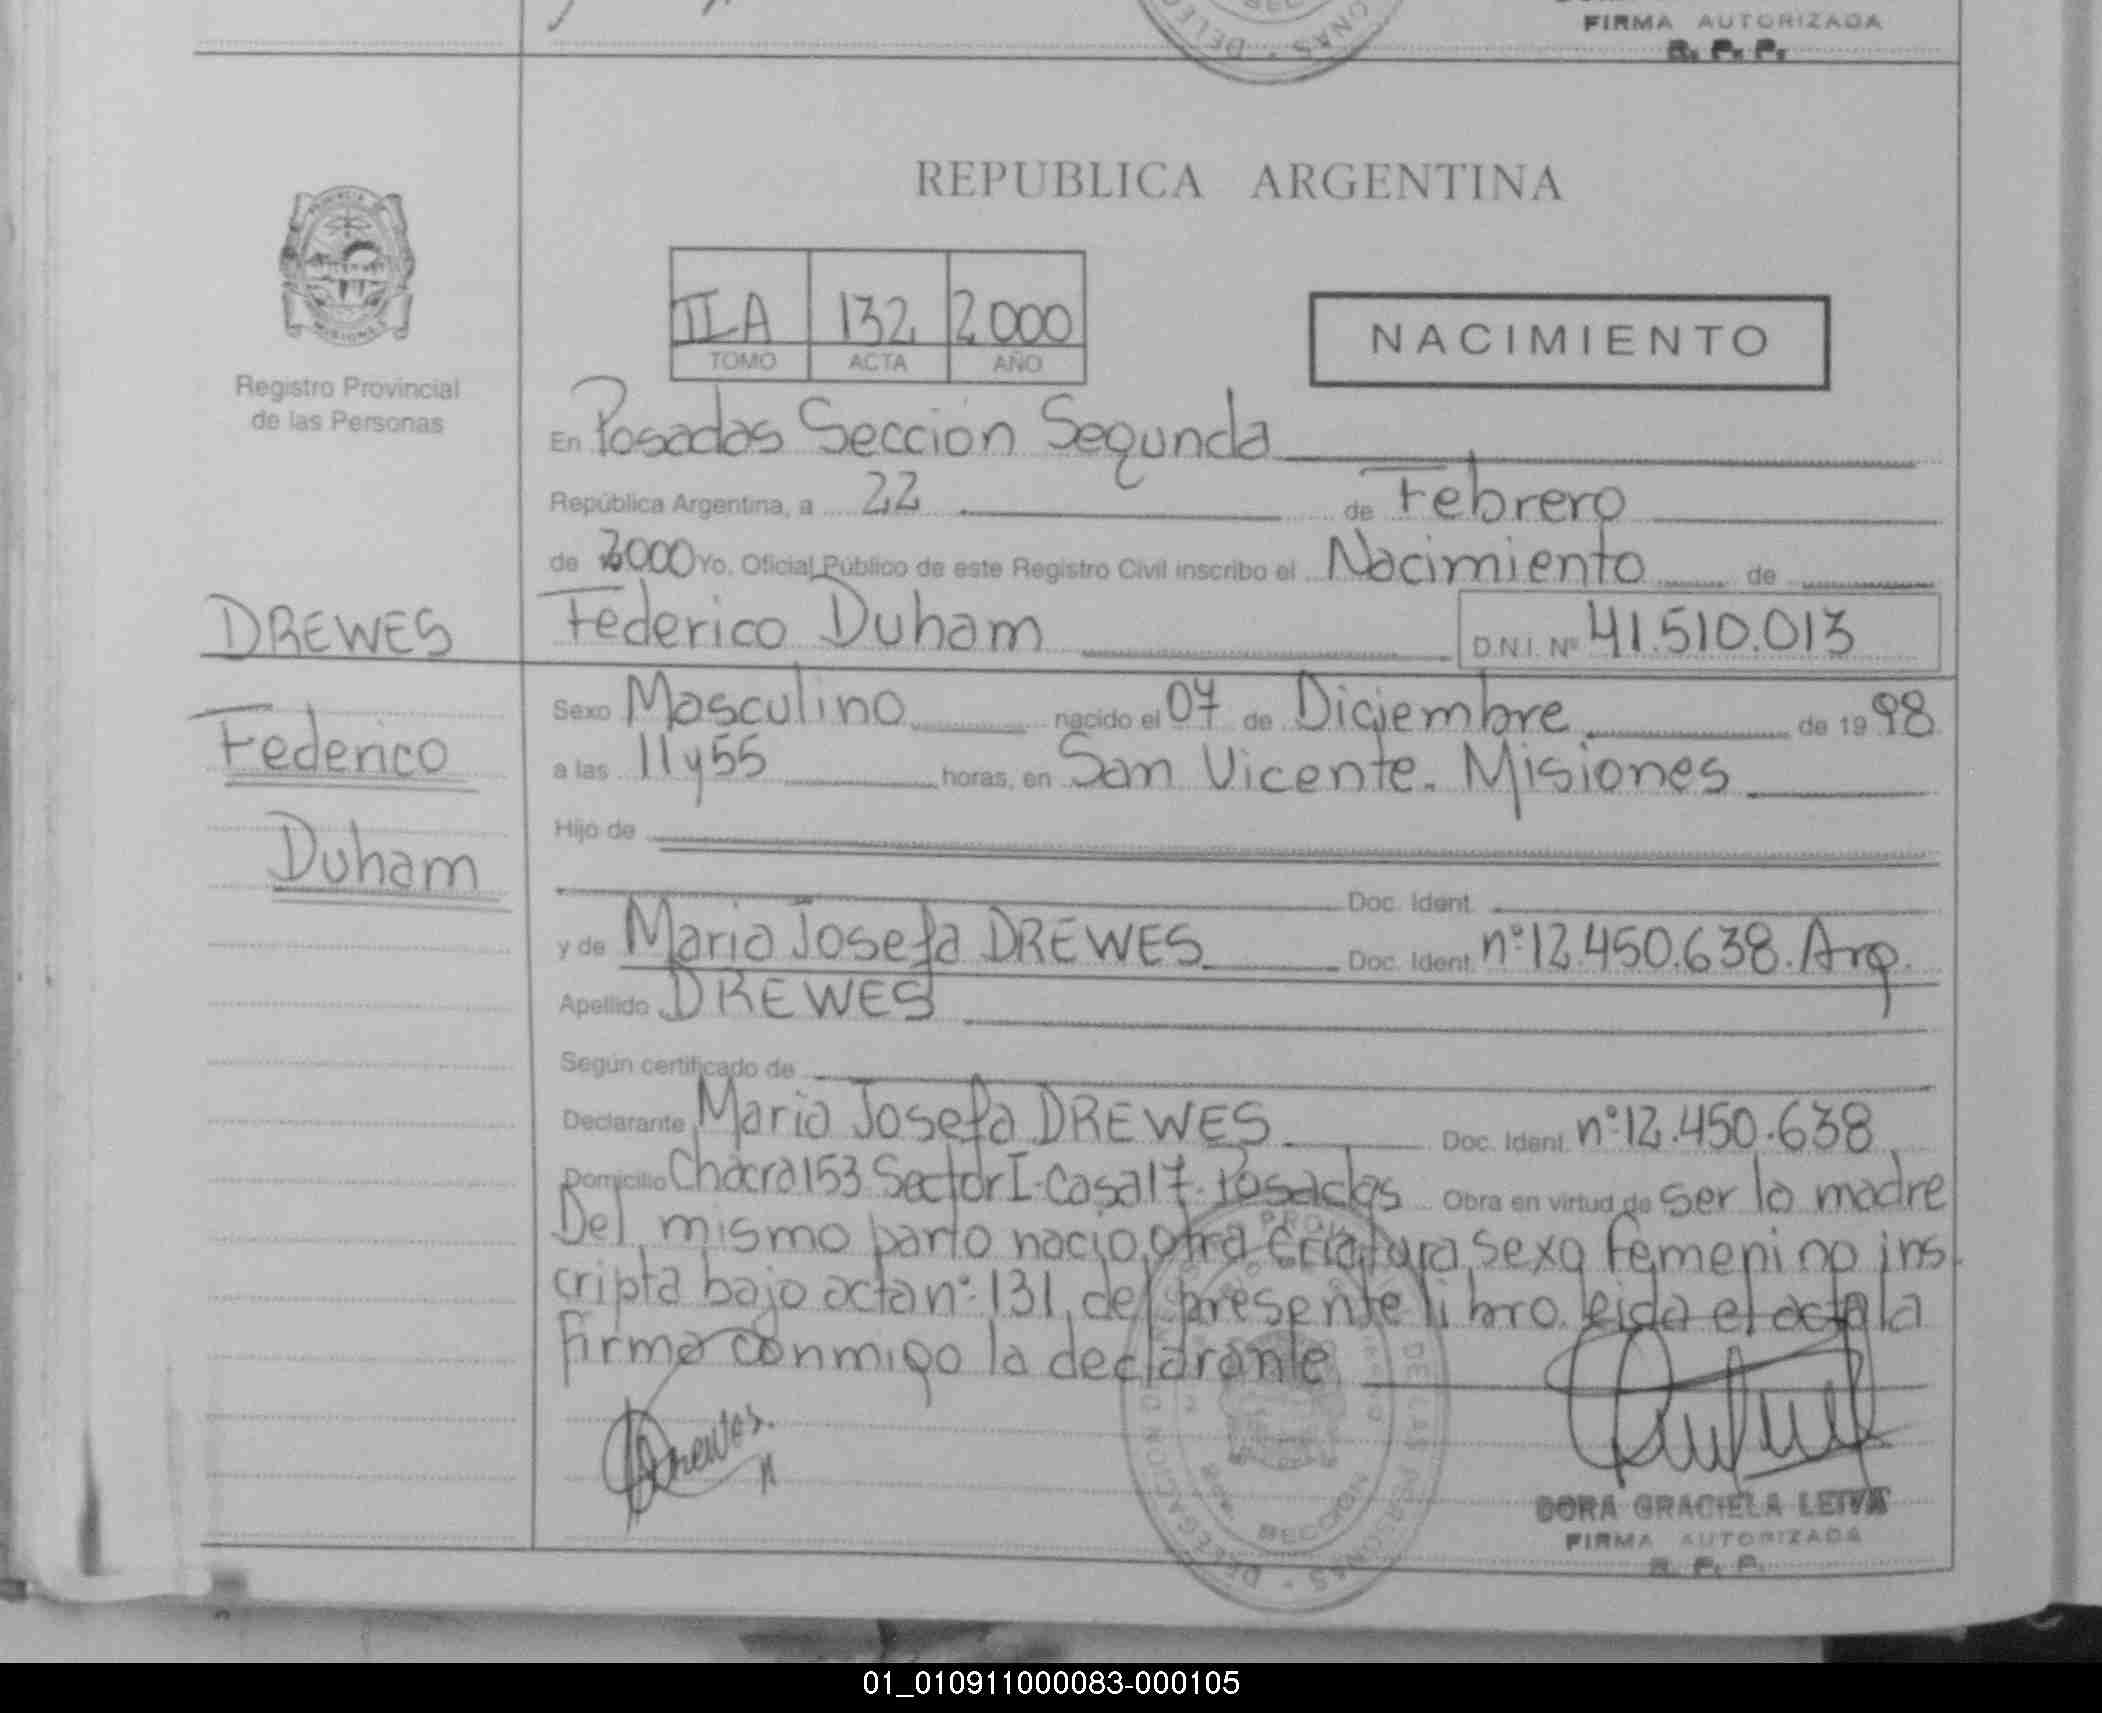 FIRMA AUTORIZADA
R. P. P.
REPUBLICA ARGENTINA
II A 132 2000
TOMO ACTA AÑO
NACIMIENTO
Registro Provincial
de las Personas
En Posadas Sección Segunda
República Argentina, a 22 de Febrero
de 2000 Yo, Oficial Público de este Registro Civil inscribo el Nacimiento de
DREWES
Federico Duham D.N.I. Nº 41.510.013
Sexo Masculino nacido el 07 de Diciembre de 1998
Federico
a las 11 y 55 horas, en San Vicente. Misiones
Hijo de
Duham
Doc. Ident.
y de Maria Josefa DREWES Doc. Ident. nº 12.450.638. Arg.
Apellido DREWES
Según certificado de
Declarante Maria Josefa DREWES Doc. Ident. nº 12.450.638
Domicilio Chacra 153 Sector I. Casa 17. Posadas Obra en virtud de ser la madre
Del mismo parto nacio otra criatura, sexo femenino ins
cripta bajo acta nº 131, del presente libro. leida el acta la
firma conmigo la declarante
Drewes.
DORA GRACIELA LEIVA
FIRMA AUTORIZADA
R. P. P.
DELEGACION SECCION DE LAS PERSONAS
01_010911000083-000105